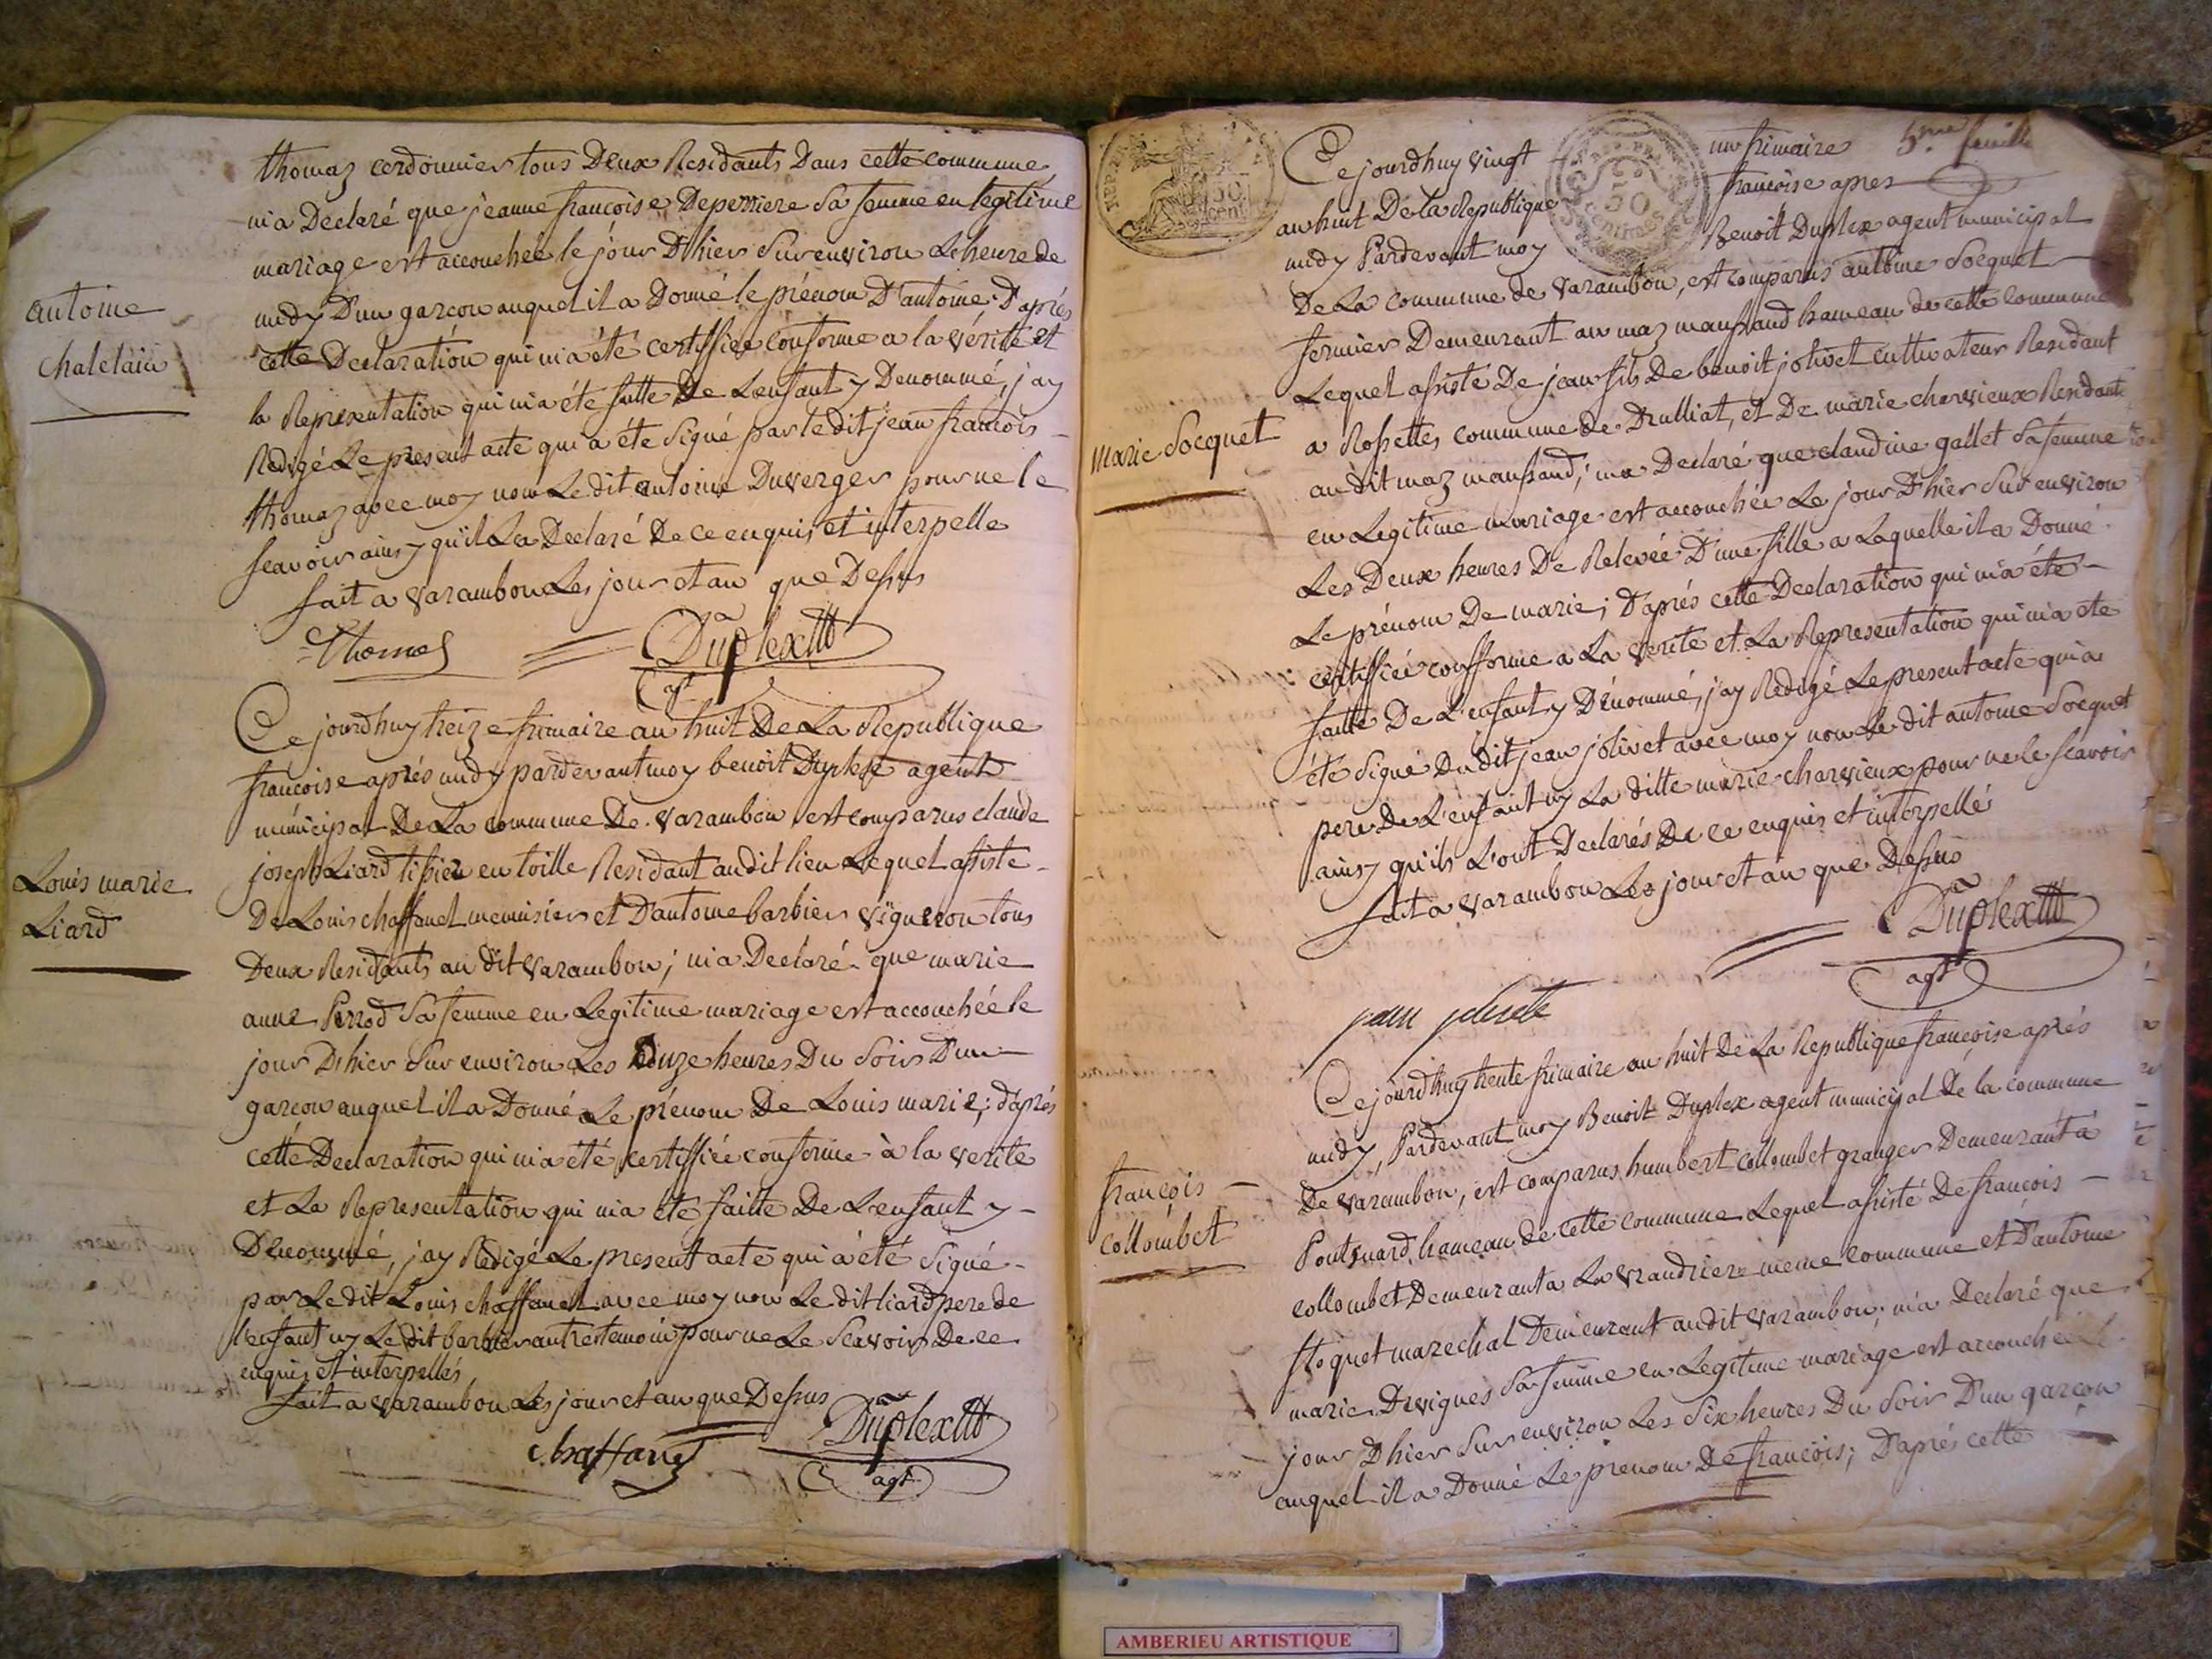 thomaz cordonnier tous Deux Residants Dans cette commune
m'a Declaré que jeanne francoise Deperriere Sa femme en legitime
mariage est accouchée le jour D'hier Sur environ L'heure de
midy D'un garcon auquel il a Donné le prénom D'antoine; D'après
cette Declaration qui m'a été certiffiée conforme a la vérité et
la Representation qui m'a été faitte De L'enfant y Denommé, j'ay
Redigé Le present acte qui a été Signé par le dit jean francois
thomaz avec moy non Le dit antoine Duverger pour ne le
scavoir ainsy qu'il L'a Declaré De ce enquis et interpelle
fait a varambon Les jour et an que Dessus
Thomas Duplex
agt
antoine
chatelain
Ce jourd'huy treize frimaire an huit De La Republique
francoise après midy pardevant moy benoit Duplex agent
municipal De La commune De varambon est comparus claude
joseph Liard tissier en toille Residant audit lieu Lequel assiste
De Louis chaffanel menuisier et D'antoine barbier vigneron tous
Deux Residants au dit varambon; m'a Declaré que marie
anne Perrod Sa femme en Legitime mariage est accouchée le
jour D'hier Sur environ Les onze heures Du Soir D'un
garcon auquel il a Donné Le prénom De Louis marie; d'après
cette Declaration qui m'a été certiffiée conforme à la verité
et La Representation qui m'a été faitte De L'enfant y
Dénommé, j'ay Redigé Le present acte qui a été Signé
par Le dit Louis chaffanel avec moy non Le dit liard pere de
l'enfant ny Le dit barbier autre temoin pour ne Le Scavoir De ce
enquis et interpellés
fait a varambon Les jour et an que Dessus
Chaffanel Duplex
agt
Louis marie
Liard
5me feuille
Ce jourd'huy vingt un frimaire
an huit De la Republique francoise apres
midy Pardevant moy Benoit Duplex agent municipal
De La commune de varambon, est comparus antoine Socquet
fermier Demeurant au maz manssand hameau de cette commune
Lequel assisté De jean fils De benoit jolivet cultivateur Residant
a Rossettes commune de Drulliat, et De marie charvieux Residante
au dit maz manssand; m'a Declaré que claudine gallet Sa femme
en Legitime mariage est accouchée Le jour D'hier Sur environ
Les Deux heures De Relevée D'une fille a Laquelle il a Donné
Le prénom De marie; D'après cette Declaration qui m'a été
certiffiée conforme a La verité et La Representation qui m'a été
faitte De L'enfant y Dénommé, j'ay Redigé Le present acte qui a
été Signé Du dit jean jolivet avec moy non Le dit antoine Socquet
pere De L'enfant ny La ditte marie charvieux pour ne le scavoir
ainsy qu'ils L'ont Declarés De ce enquis et interpellés
fait a varambon Les jour et an que Dessus
Duplex
agt
marie Socquet
Ce jourd'huy trente frimaire an huit De La Republique françoise après
midy, Pardevant moy Benoit Duplex agent municipal De la commune
De varambon, est comparus humbert collombet granger Demeurant à
hameau de cette commune Lequel assisté De francois
collombet Demeurant a La vraudriere meme commune et D'antoine
marechal Demeurant audit varambon; m'a Declaré que
marie Devignes Sa femme en Legitime mariage est accouchée Le
jour D'hier Sur environ Les Six heures Du Soir D'un garcon
auquel il a Donné Le prenom De francois; D'après cette
françois
collombet
AMBERIEU ARTISTIQUE